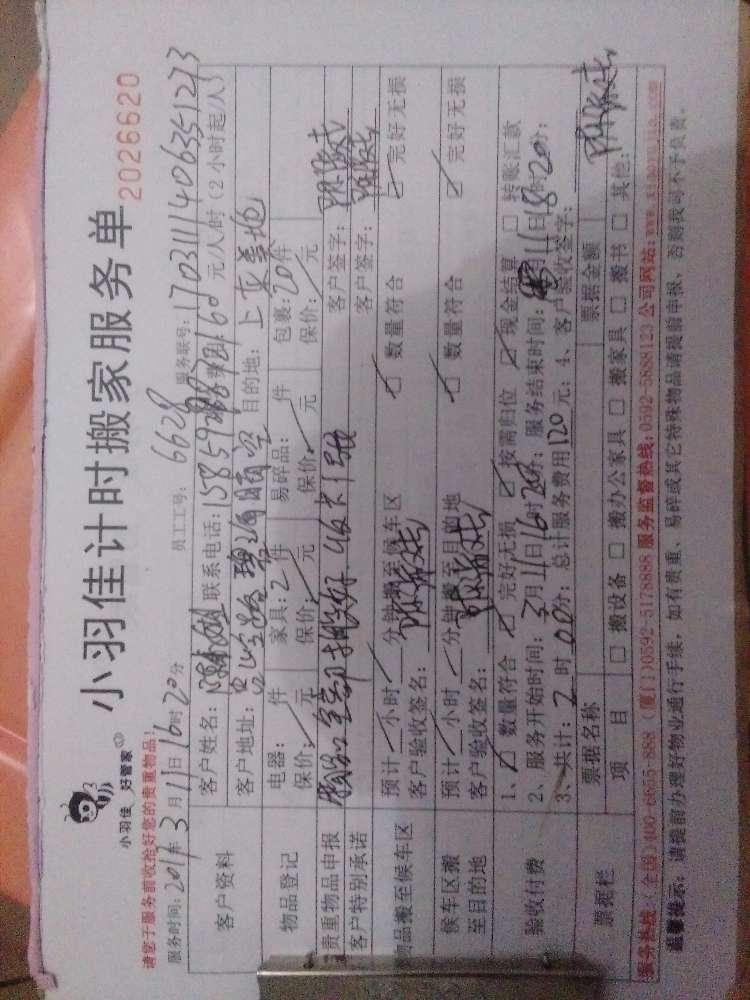 小羽佳计时搬家服务单
小羽佳 好管家
2026620
请您于服务前收拾好您的贵重物品!
服务时间: 2017年3月11日16时20分 员工工号: 6628 服务联号: 1703111406351273
客户资料
客户姓名: 联系电话: 服务费用: 60元/人/时（2小时起/人）
客户地址: 目的地:
物品登记
电器: 件 家具: 2件 易碎品: 件 包裹: 20件
保价: 元 保价: 元 保价: 元 保价: 元
贵重物品申报 客户签字:
客户特别承诺 客户签字:
物品搬至候车区
预计 小时 分钟搬至候车区 数量符合 完好无损
客户验收签名:
候车区搬至目的地
预计 小时 分钟搬至目的地 数量符合 完好无损
客户验收签名:
验收付费
1、 数量符合 完好无损 按需归位 现金结算 转账汇款
2、服务开始时间: 3月11日16时20分; 服务结束时间: 月11日18时20分;
3、共计: 2时00分; 总计服务费用120元; 4、客户验收签字:
票据栏
票据名称 票据金额
项 目 搬设备 搬办公家具 搬家具 搬书 其他:
服务热线:(全国)400-6865-888 (厦门)0592-5178888 服务监督热线:0592-5888123 公司网站:www.xiaoyujia.com
温馨提示: 请提前办理好物业通行手续，如有贵重、易碎或其它特殊物品请提前申报，否则我司不予负责。